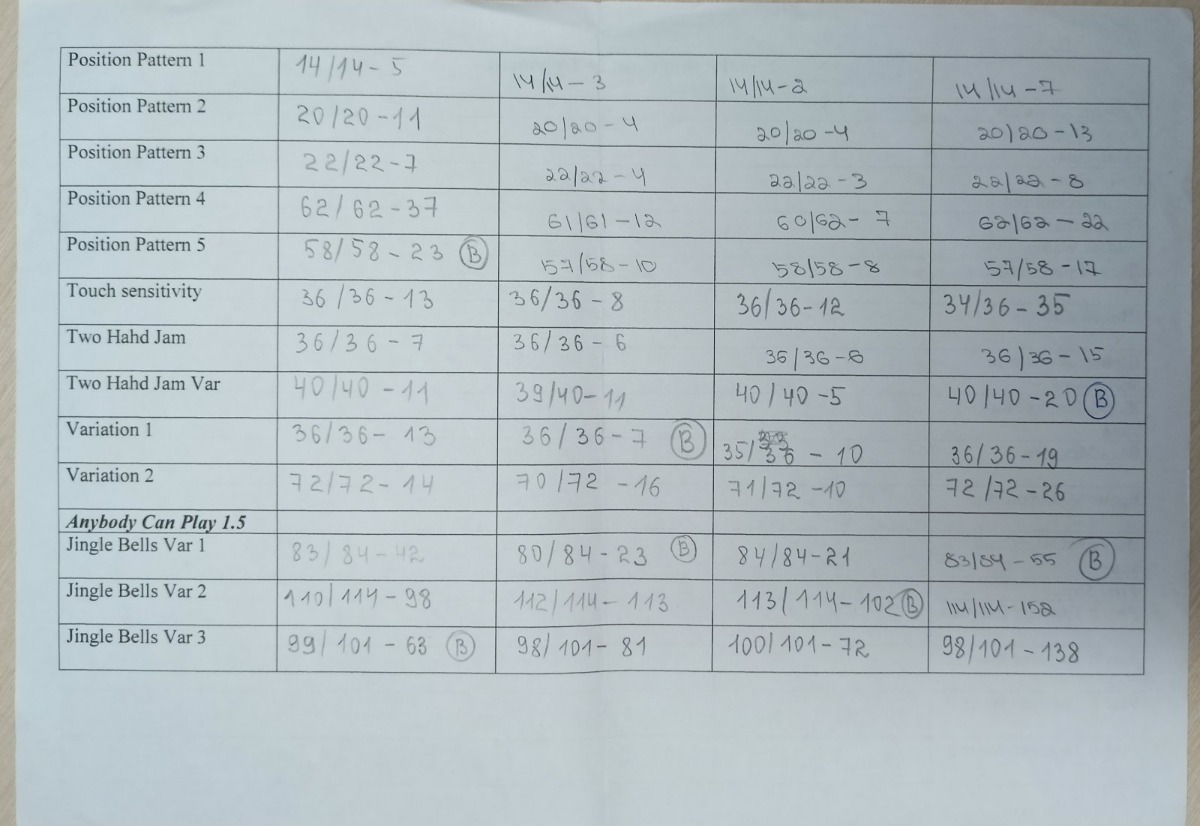 Position Pattern 1 14/14 - 5 14/14 - 3 14/14 - 2 14/14 - 7
Position Pattern 2 20/20 - 11 20/20 - 4 20/20 - 4 20/20 - 13
Position Pattern 3 22/22 - 7 22/22 - 4 22/22 - 3 22/22 - 8
Position Pattern 4 62/62 - 37 61/61 - 12 60/62 - 7 62/62 - 22
Position Pattern 5 58/58 - 23 B 57/58 - 10 58/58 - 8 57/58 - 17
Touch sensitivity 36/36 - 13 36/36 - 8 36/36 - 12 34/36 - 35
Two Hahd Jam 36/36 - 7 36/36 - 6 36/36 - 6 36/36 - 15
Two Hahd Jam Var 40/40 - 11 39/40 - 11 40/40 - 5 40/40 - 20 B
Variation 1 36/36 - 13 36/36 - 7 B 35/36 - 10 36/36 - 19
Variation 2 72/72 - 14 70/72 - 16 71/72 - 10 72/72 - 26
Anybody Can Play 1.5
Jingle Bells Var 1 83/84 - 42 80/84 - 23 B 84/84 - 21 83/84 - 55 B
Jingle Bells Var 2 110/114 - 98 112/114 - 113 113/114 - 102 B 114/114 - 152
Jingle Bells Var 3 99/101 - 63 B 98/101 - 81 100/101 - 72 98/101 - 138